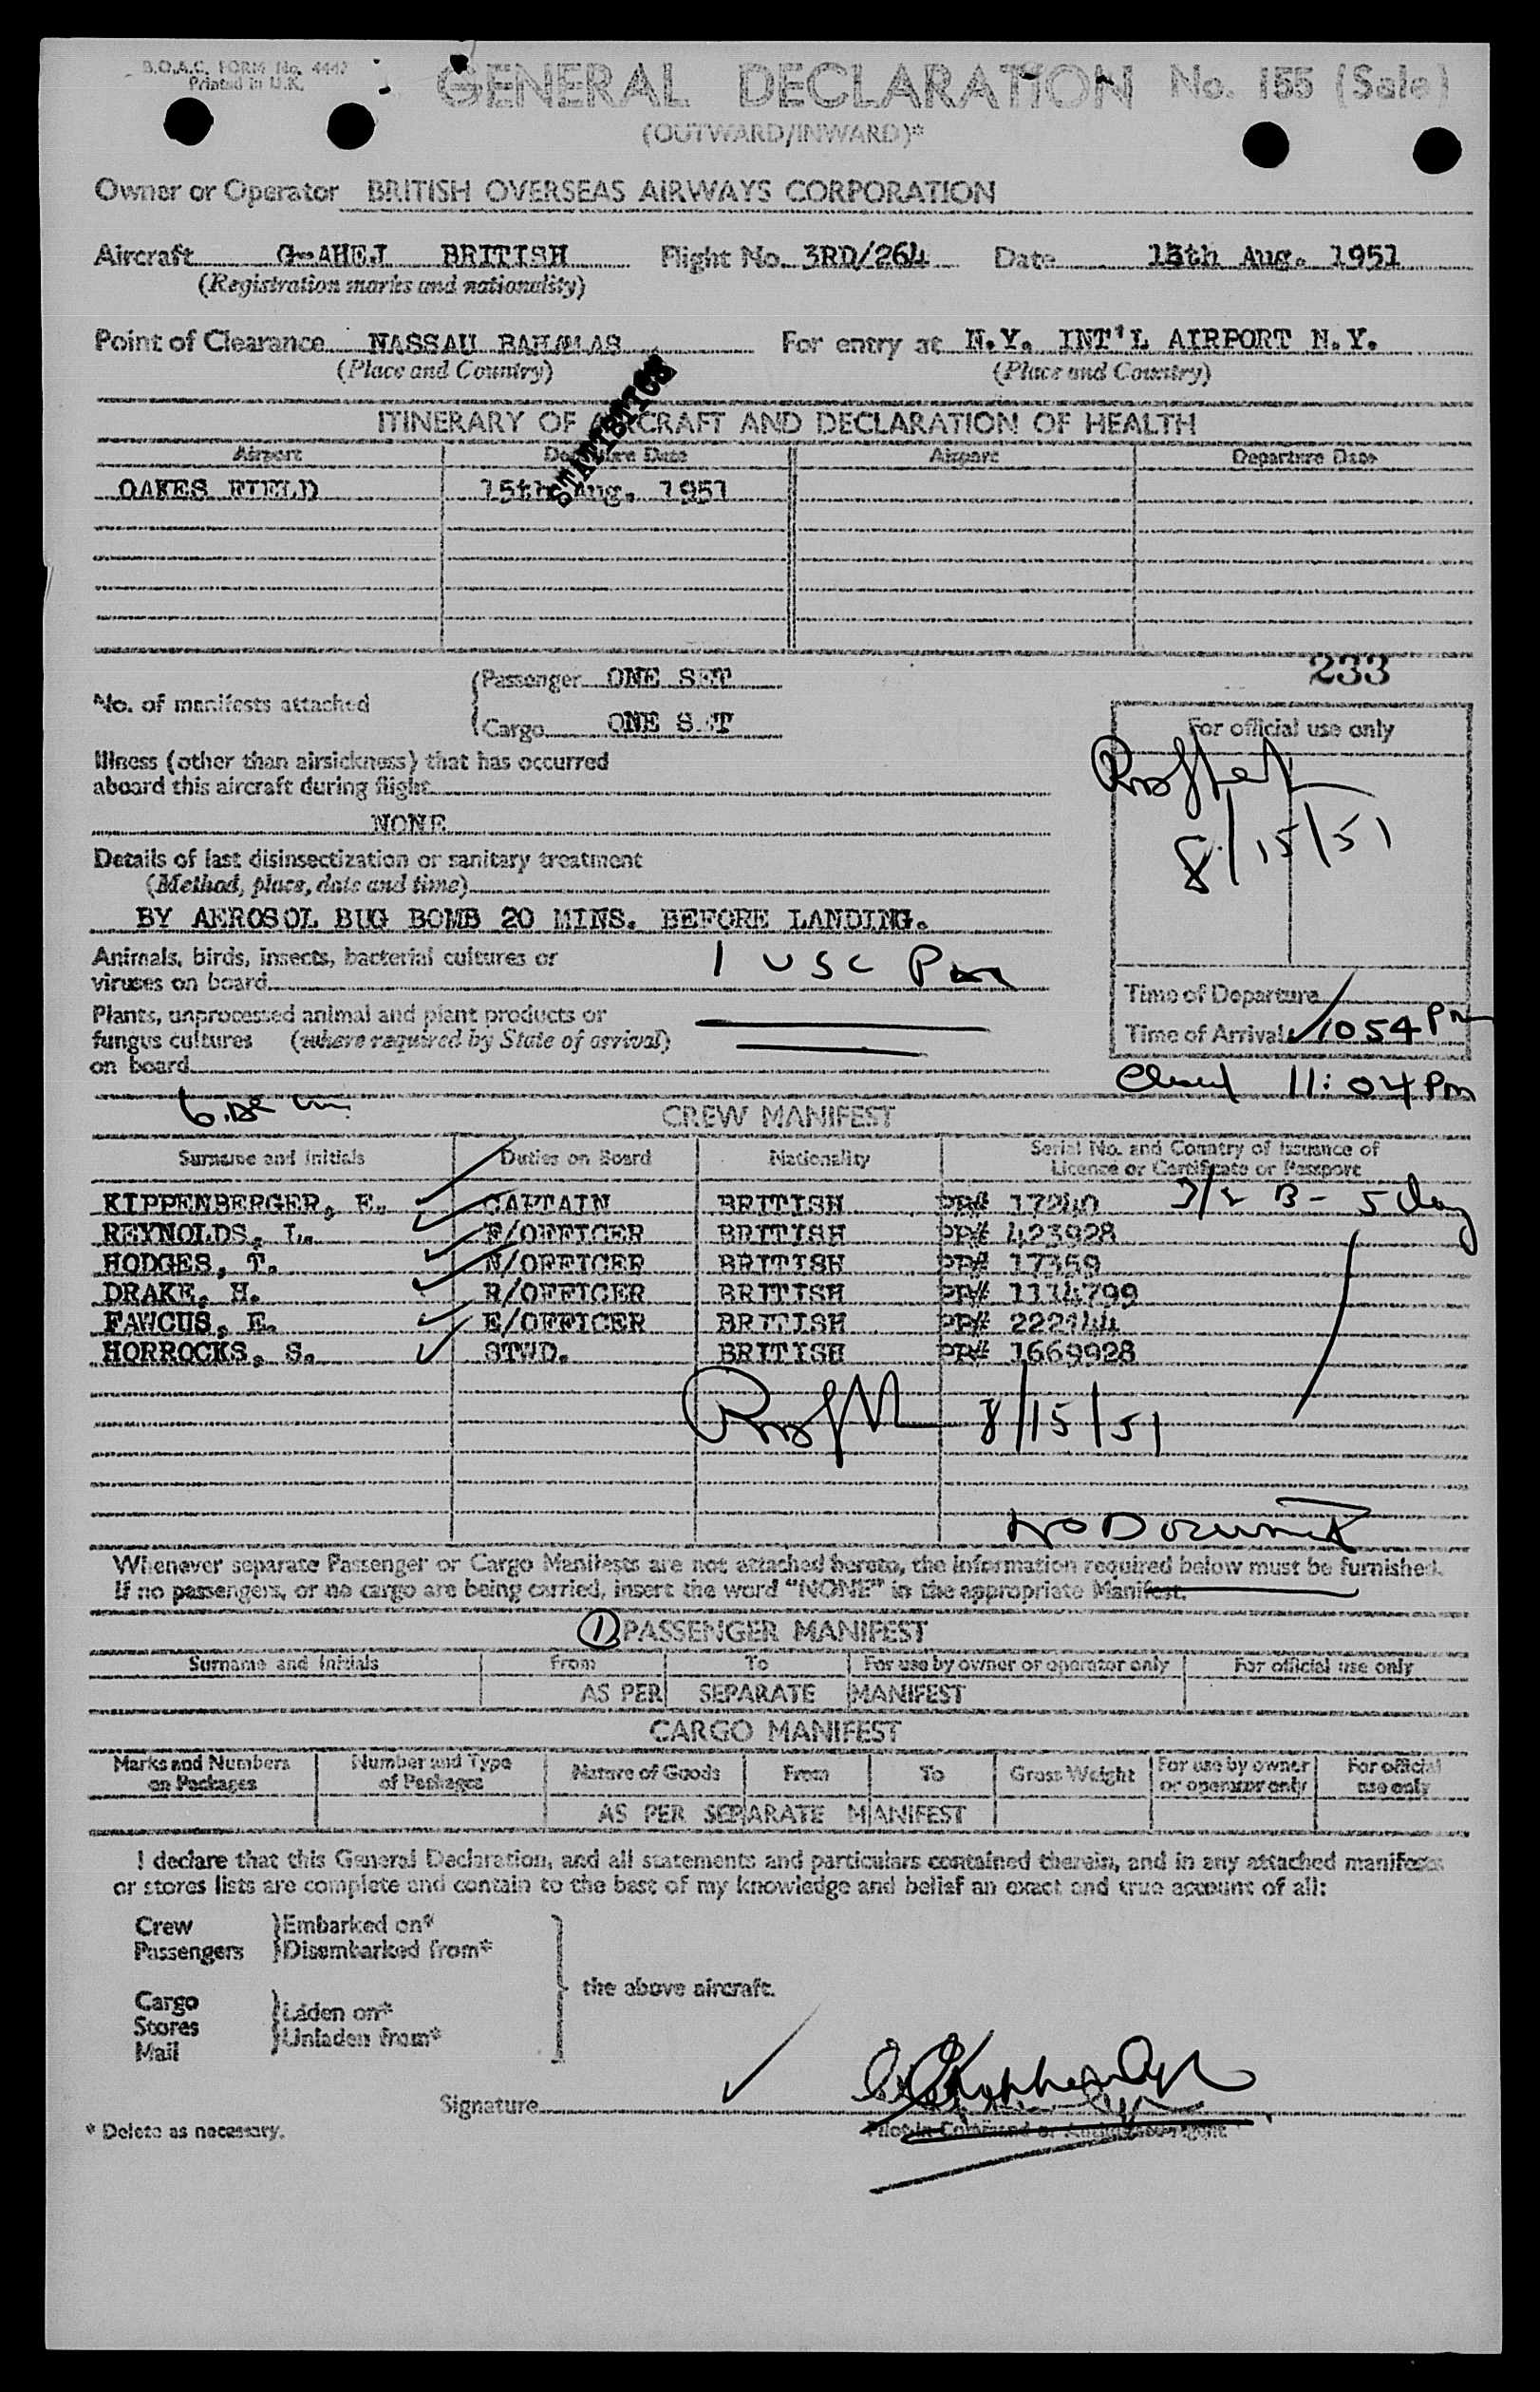 B.O.A.C. FORM No. 4447
Printed in U.K.
GENERAL DECLARATION No. 155 (Sale)
(OUTWARD/INWARD)*
Owner or Operator BRITISH OVERSEAS AIRWAYS CORPORATION
Aircraft G-AHEJ BRITISH Flight No. 3RD/264 Date 15th Aug. 1951
(Registration marks and nationality)
Point of Clearance NASSAU BAHAMAS For entry at N.Y. INT'L AIRPORT N.Y.
(Place and Country) (Place and Country)
STATISTICS
ITINERARY OF AIRCRAFT AND DECLARATION OF HEALTH
Airport Departure Date Airport Departure Date
OAKES FIELD 15th Aug. 1951
233
No. of manifests attached
Passenger ONE SET
Cargo ONE SET
For official use only
8/15/51
Illness (other than airsickness) that has occurred
aboard this aircraft during flight
NONE
Details of last disinsectization or sanitary treatment
(Method, place, date and time)
BY AEROSOL BUG BOMB 20 MINS. BEFORE LANDING.
Animals, birds, insects, bacterial cultures or
viruses on board
1 USC
Plants, unprocessed animal and plant products or
fungus cultures (where required by State of arrival)
on board
Time of Departure
Time of Arrival 1054 PM
Closed 11:04 PM
CREW MANIFEST
Surname and Initials Duties on Board Nationality Serial No. and Country of Issuance of
Licence or Certificate or Passport
KIPPENBERGER, E. CAPTAIN BRITISH PP# 17240 3/2 B - 5 day
REYNOLDS, L. F/OFFICER BRITISH PP# 423928
HODGES, T. N/OFFICER BRITISH PP# 17359
DRAKE, H. R/OFFICER BRITISH PP# 1114799
FAWCUS, E. E/OFFICER BRITISH PP# 222144
HORROCKS, S. STWD. BRITISH PP# 1669928
8/15/51
No Document
Whenever separate Passenger or Cargo Manifests are not attached hereto, the information required below must be furnished.
If no passengers, or no cargo are being carried, insert the word "NONE" in the appropriate Manifest.
1 PASSENGER MANIFEST
Surname and Initials From To For use by owner or operator only For official use only
AS PER SEPARATE MANIFEST
CARGO MANIFEST
Marks and Numbers on Packages Number and Type of Packages Nature of Goods From To Gross Weight For use by owner or operator only For official use only
AS PER SEPARATE MANIFEST
I declare that this General Declaration, and all statements and particulars contained therein, and in any attached manifests
or stores lists are complete and contain to the best of my knowledge and belief an exact and true account of all:
Crew Embarked on*
Passengers Disembarked from*
the above aircraft.
Cargo Laden on*
Stores Unladen from*
Mail
Signature
Pilot in Command or Authorised Agent
* Delete as necessary.